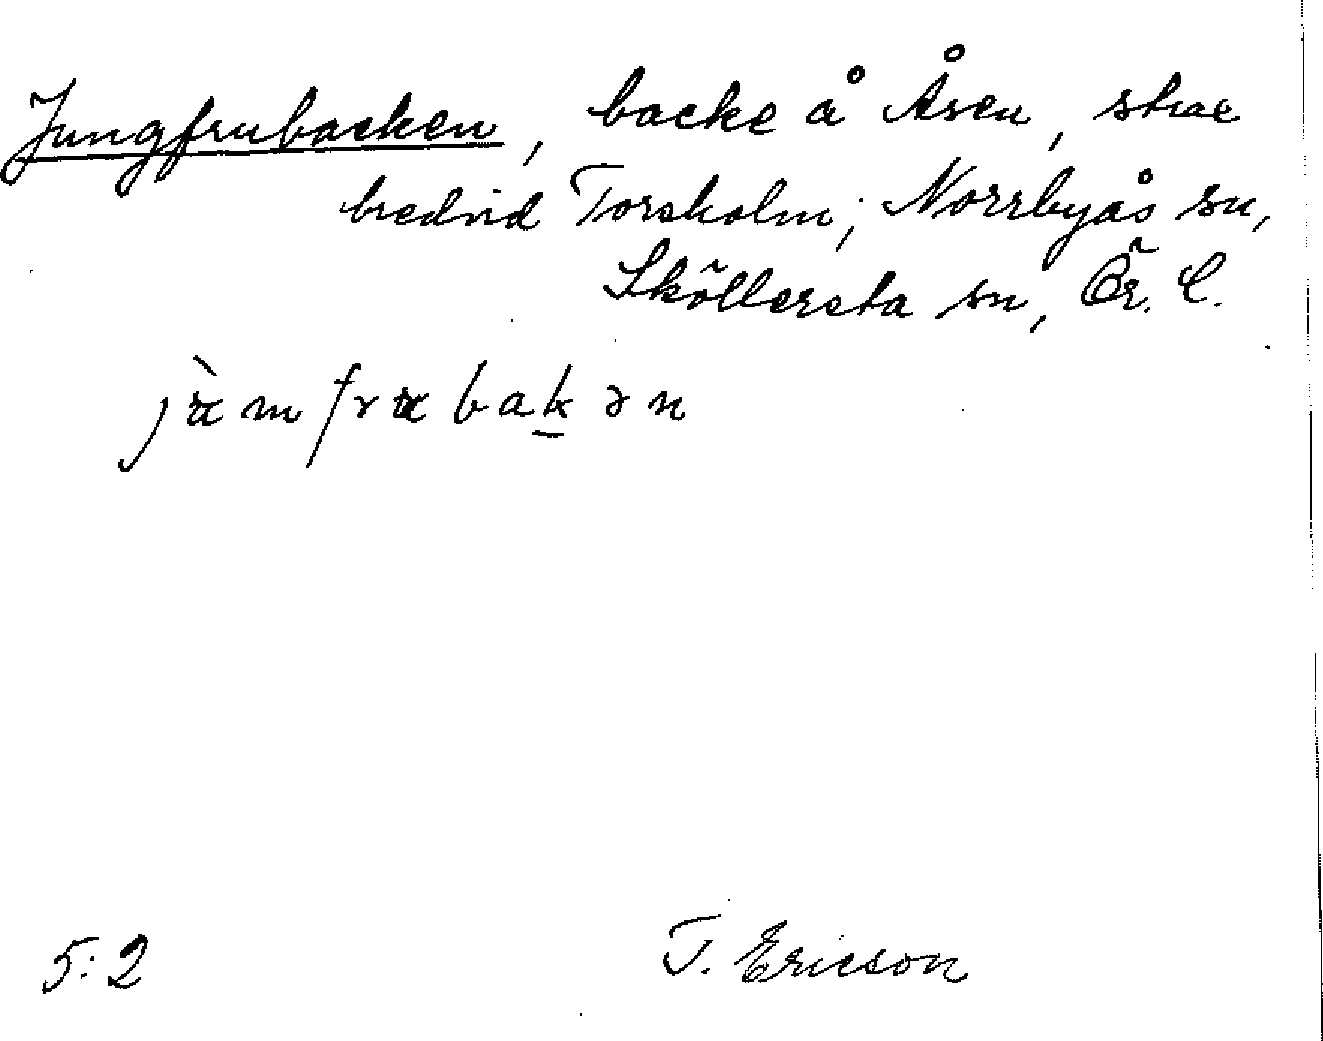 Jungfrubacken, backe å Åsen, strax
bredvid Torsholm; Norrbyås sn,
Sköllersta sn, Ör. L.
5:2
T. Ericson